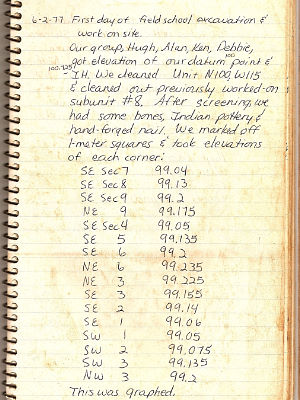 6-2-77 First day of field school excavation &
work on site.
Our group, Hugh, Alan, Ken, Debbie,
got elevation of our datum point &
100.125?
100
- I.H. We cleaned Unit N100, W115
& cleaned out previously worked-on
subunit #8. After screening, we
had some bones, Indian pottery &
hand-forged nail. We marked off
1-meter squares & took elevations
of each corner:
SE Sec 7 99.04
SE Sec 8 99.13
SE Sec 9 99.2
NE 9 99.175
SE Sec 4 99.05
SE 5 99.135
SE 6 99.2
NE 6 99.235
NE 3 99.225
SE 3 99.155
SE 2 99.14
SE 1 99.06
SW 1 99.05
SW 2 99.075
SW 3 99.135
NW 3 99.2
This was graphed.